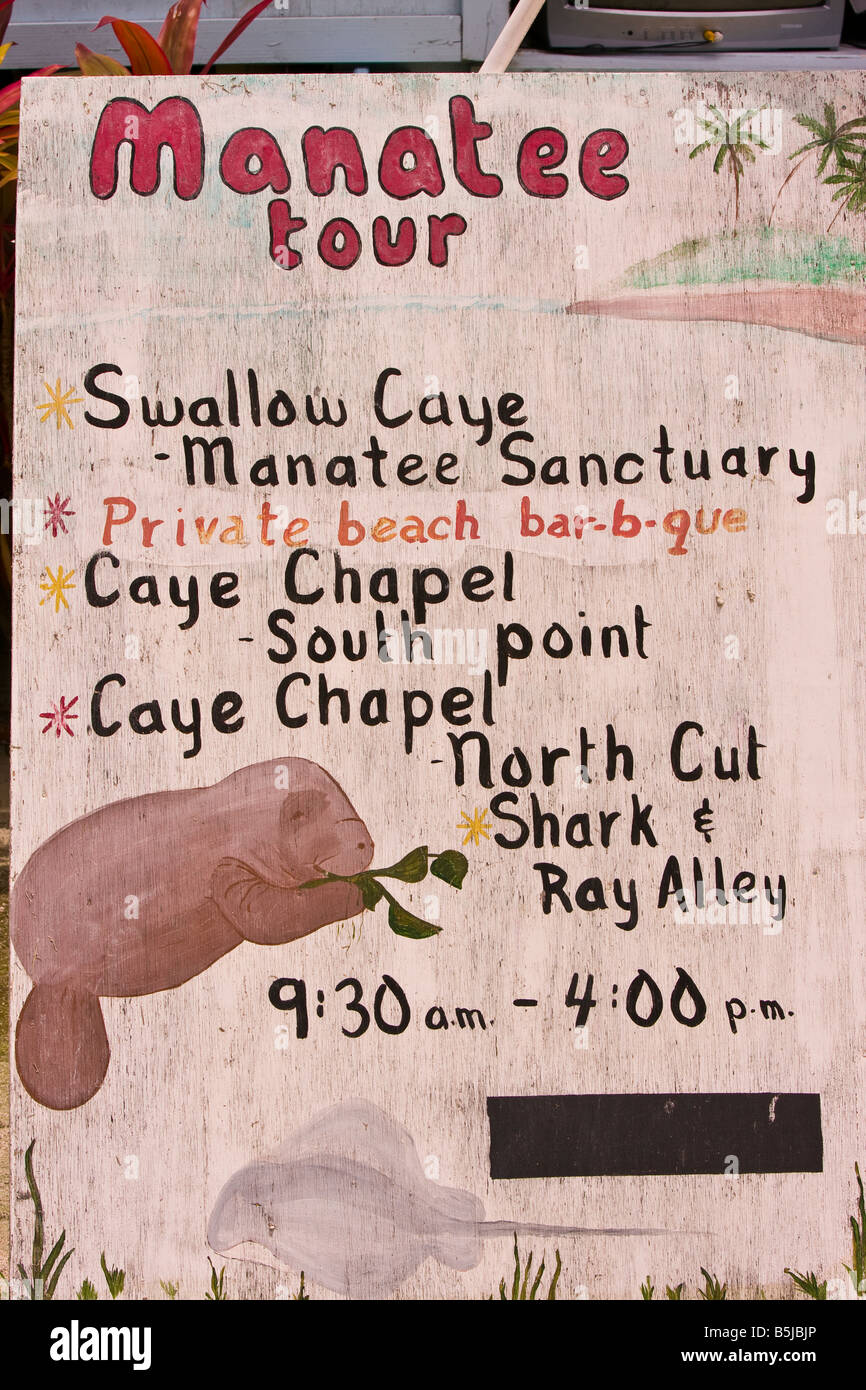 Manatee
tour
Swallow Caye
-Manatee Sanctuary
Private beach bar-b-que
Caye Chapel
-South point
Caye Chapel
-North Cut
Shark &
Ray Alley
9:30 a.m. - 4:00 p.m.
alamy
Image ID: B5JBJP
www.alamy.com